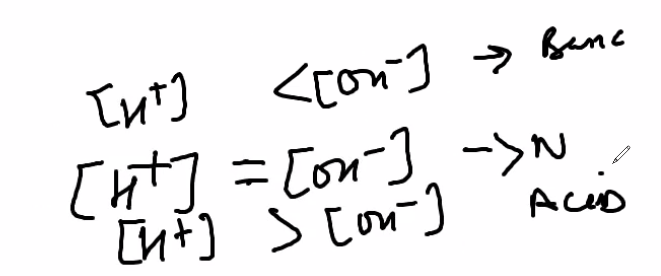 [H⁺] < [OH⁻] → Basic
[H⁺] = [OH⁻] → N
[H⁺] > [OH⁻] Acid